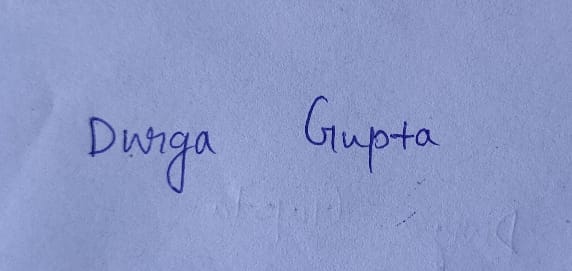 Durga Gupta